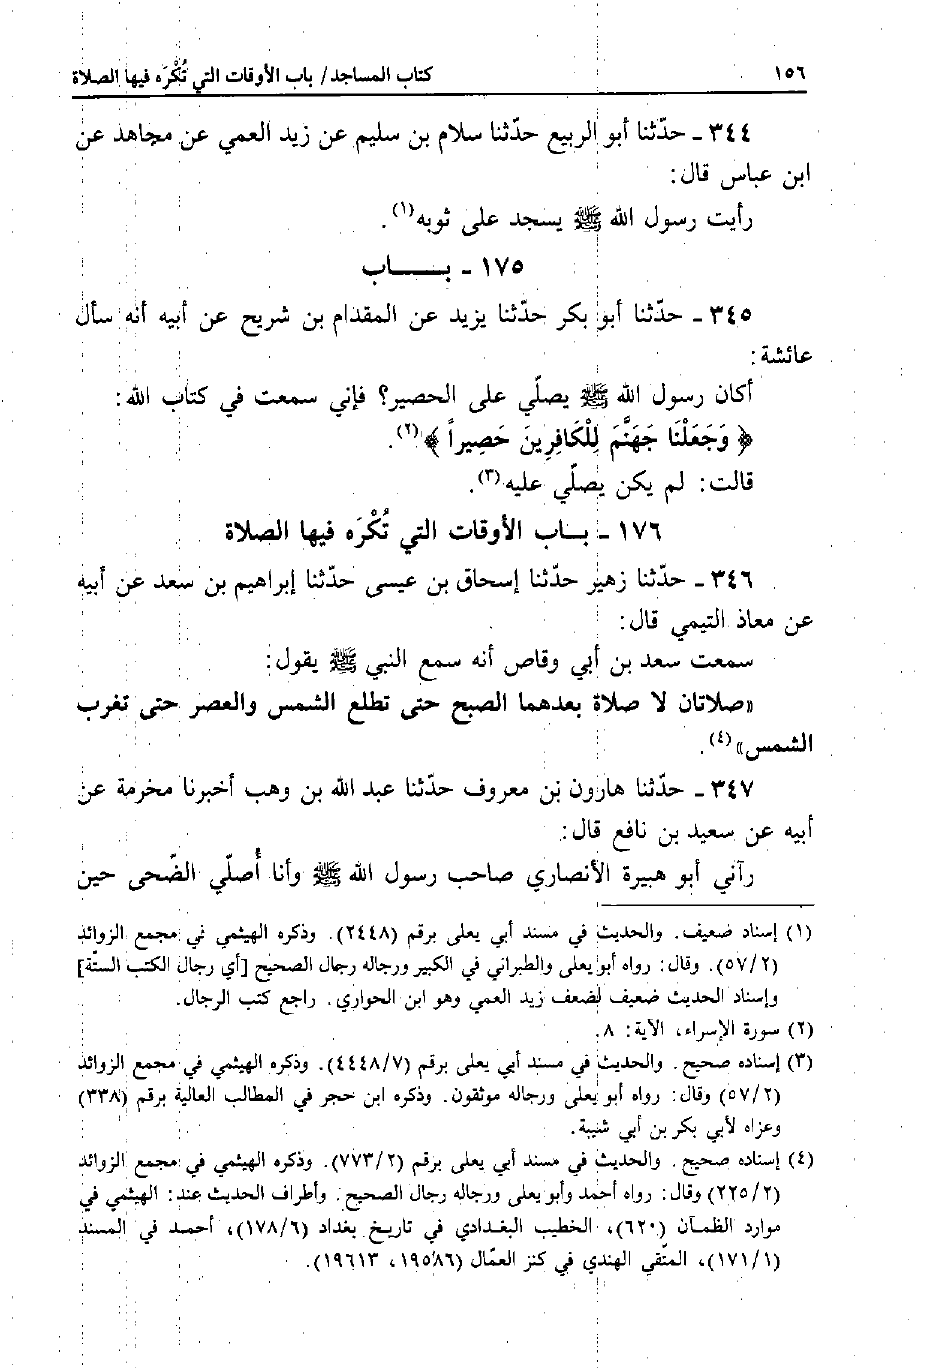 ١٥٦ كتاب المساجد/ باب الأوقات التي تُكْرَه فيها الصلاة
٣٤٤ ـ حدّثنا أبو الربيع حدّثنا سلام بن سليم عن زيد العمي عن مجاهد عن
ابن عباس قال:
رأيت رسول الله ﷺ يسجد على ثوبه(١).
١٧٥ ـ بـــــاب
٣٤٥ ـ حدّثنا أبو بكر حدّثنا يزيد عن المقدام بن شريح عن أبيه أنه سأل
عائشة:
أكان رسول الله ﷺ يصلّي على الحصير؟ فإني سمعت في كتاب الله:
﴿ وَجَعَلْنَا جَهَنَّمَ لِلْكَافِرِينَ حَصِيراً ﴾(٢).
قالت: لم يكن يصلّي عليه(٣).
١٧٦ ـ بــاب الأوقات التي تُكْرَه فيها الصلاة
٣٤٦ ـ حدّثنا زهير حدّثنا إسحاق بن عيسى حدّثنا إبراهيم بن سعد عن أبيه
عن معاذ التيمي قال:
سمعت سعد بن أبي وقاص أنه سمع النبي ﷺ يقول:
«صلاتان لا صلاة بعدهما الصبح حتى تطلع الشمس والعصر حتى تغرب
الشمس»(٤).
٣٤٧ ـ حدّثنا هارون بن معروف حدّثنا عبد الله بن وهب أخبرنا مخرمة عن
أبيه عن سعيد بن نافع قال:
رآني أبو هبيرة الأنصاري صاحب رسول الله ﷺ وأنا أُصلّي الضّحى حين
(١) إسناد ضعيف. والحديث في مسند أبي يعلى برقم (٢٤٤٨). وذكره الهيثمي في مجمع الزوائد
(٥٧/٢). وقال: رواه أبو يعلى والطبراني في الكبير ورجاله رجال الصحيح [أي رجال الكتب الستّة]
وإسناد الحديث ضعيف لضعف زيد العمي وهو ابن الحواري. راجع كتب الرجال.
(٢) سورة الإسراء، الآية: ٨.
(٣) إسناده صحيح. والحديث في مسند أبي يعلى برقم (٤٤٤٨/٧). وذكره الهيثمي في مجمع الزوائد
(٥٧/٢) وقال: رواه أبو يعلى ورجاله موثقون. وذكره ابن حجر في المطالب العالية برقم (٣٣٨)
وعزاه لأبي بكر بن أبي شيبة.
(٤) إسناده صحيح. والحديث في مسند أبي يعلى برقم (٧٧٣/٢). وذكره الهيثمي في مجمع الزوائد
(٢٢٥/٢) وقال: رواه أحمد وأبو يعلى ورجاله رجال الصحيح. وأطراف الحديث عند: الهيثمي في
موارد الظمآن (٦٢٠)، الخطيب البغدادي في تاريخ بغداد (١٧٨/٦)، أحمد في المسند
(١٧١/١)، المتّقي الهندي في كنز العمّال (١٩٥٨٦، ١٩٦١٣).